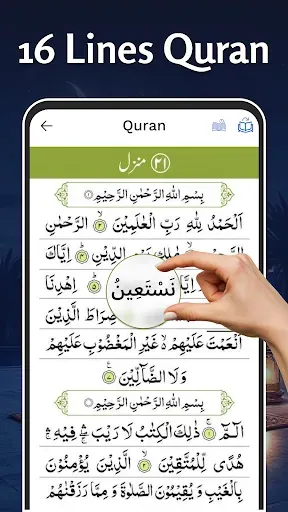 16 Lines Quran
Quran
منزل ٢١
بِسْمِ اللهِ الرَّحْمٰنِ الرَّحِيْمِ ١
اَلْحَمْدُ لِلّٰهِ رَبِّ الْعٰلَمِيْنَ ٢ الرَّحْمٰنِ
الدِّيْنِ ٤ اِيَّاكَ
نَسْتَعِيْنُ ٥ اِهْدِنَا
صِرَاطَ الَّذِيْنَ
اَنْعَمْتَ عَلَيْهِمْ ۙ غَيْرِ الْمَغْضُوْبِ عَلَيْهِمْ
وَلَا الضَّآلِّيْنَ
بِسْمِ اللهِ الرَّحْمٰنِ الرَّحِيْمِ
الٓمّٓ ١ ذٰلِكَ الْكِتٰبُ لَا رَيْبَ ۛ فِيْهِ ۛ
هُدًى لِّلْمُتَّقِيْنَ ٢ الَّذِيْنَ يُؤْمِنُوْنَ
بِالْغَيْبِ وَ يُقِيْمُوْنَ الصَّلٰوةَ وَ مِمَّا رَزَقْنٰهُمْ